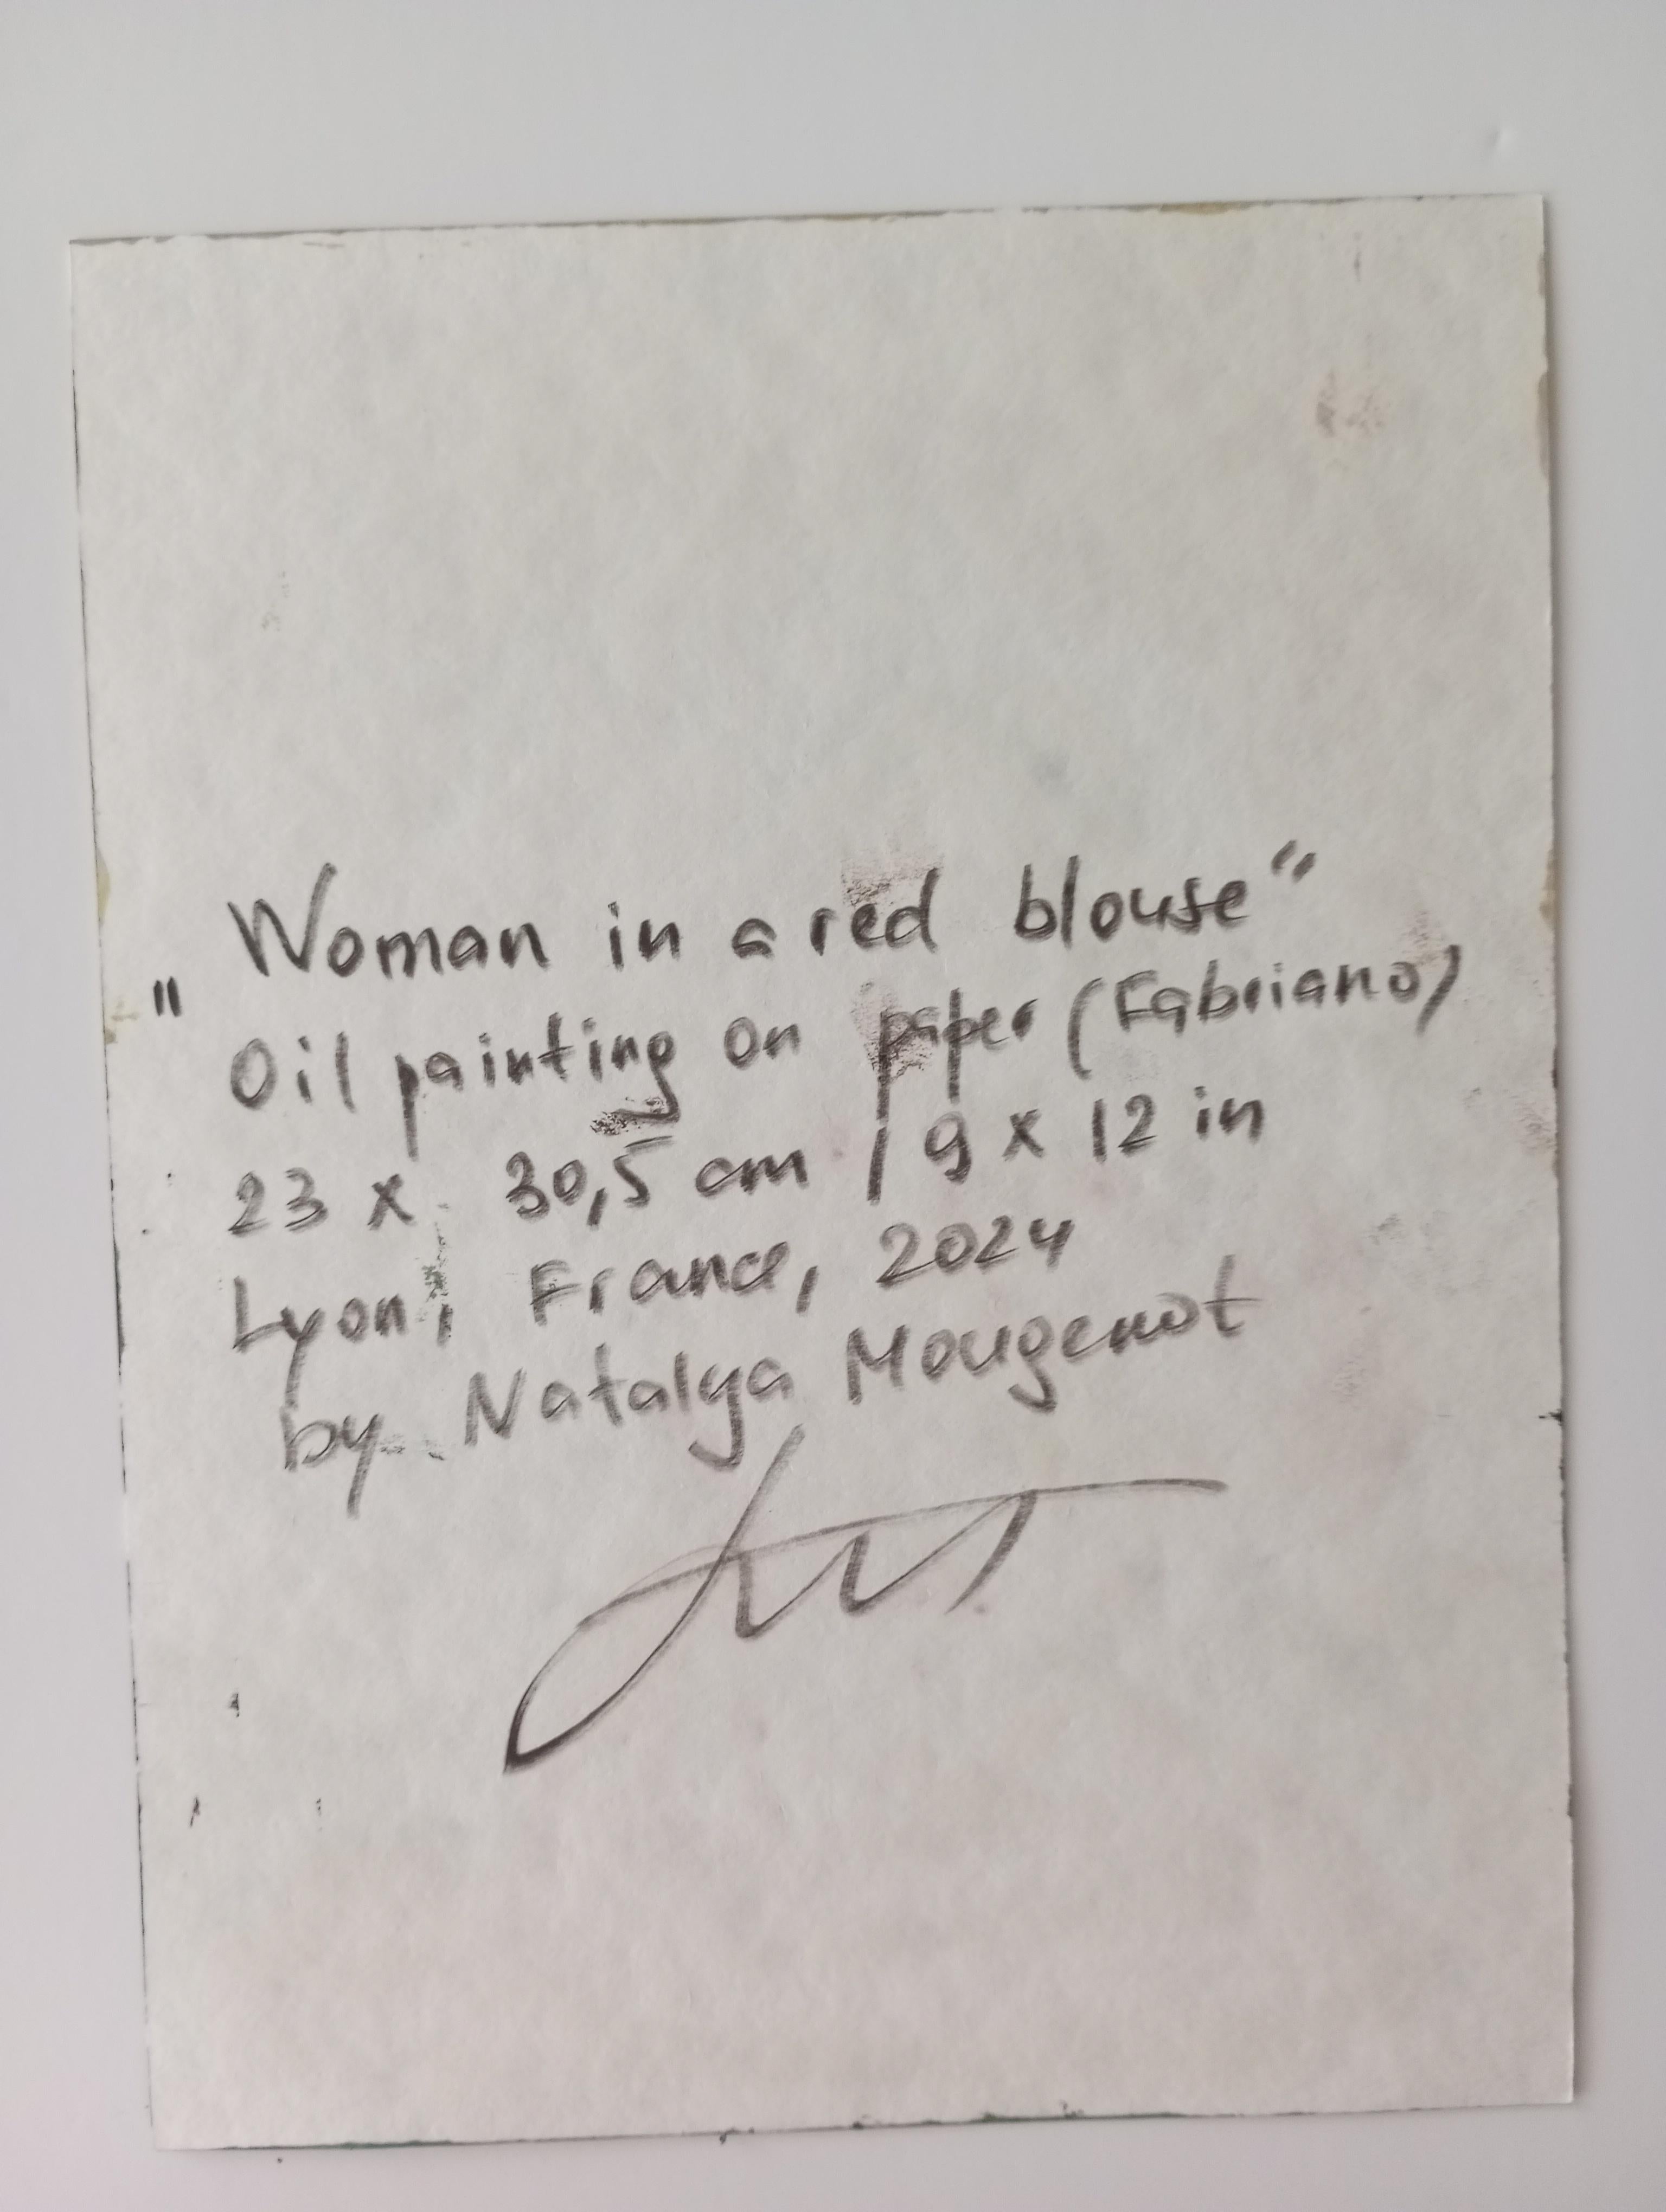 „Woman in a red blouse“
Oil painting on paper (Fabriano)
23 x 30,5 cm / 9 x 12 in
Lyon, France, 2024
by Natalya Mougenot